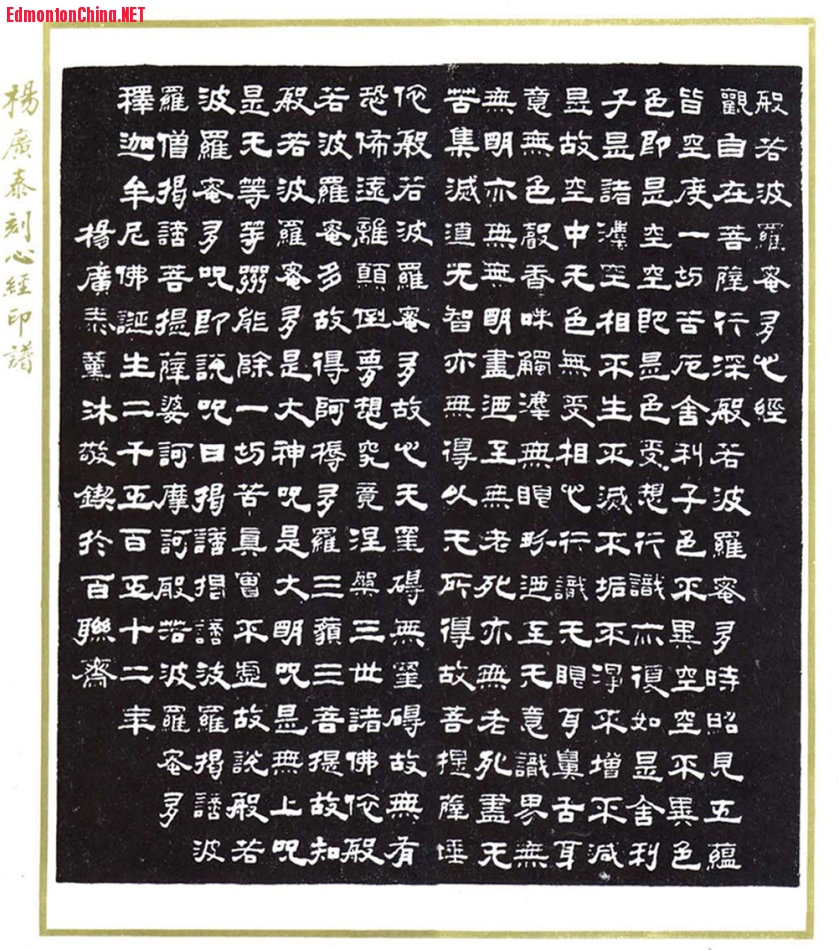 EdmontonChina.NET
般若波羅蜜多心經
觀自在菩薩行深般若波羅蜜多時照見五蘊
皆空度一切苦厄舍利子色不異空空不異色
色即是空空即昰色受想行識亦復如昰舍利
子昰諸法空相不生不滅不垢不淨不增不減
昰故空中无色無受相心行識无眼耳鼻舌耳
意無色聲香味觸法無眼界迺至无意識界無
無明亦無無明盡迺至無老死亦無老死盡无
苦集滅道无智亦無得以无所得故菩提薩埵
依般若波羅蜜多故心无罣礙無罣礙故無有
恐怖遠離顛倒夢想究竟涅槃三世諸佛依般
若波羅蜜多故得阿耨多羅三藐三菩提故知
般若波羅蜜多是大神咒是大明咒昰無上咒
昰无等等咒能除一切苦真實不虛故說般若
波羅蜜多咒即說咒曰揭諦揭諦波羅揭諦波
羅僧揭諦菩提薩婆訶摩訶般若波羅蜜多
釋迦牟尼佛誕生二千五百五十二年
楊廣泰薰沐敬鍥於百聯齋
楊廣泰刻心經印譜